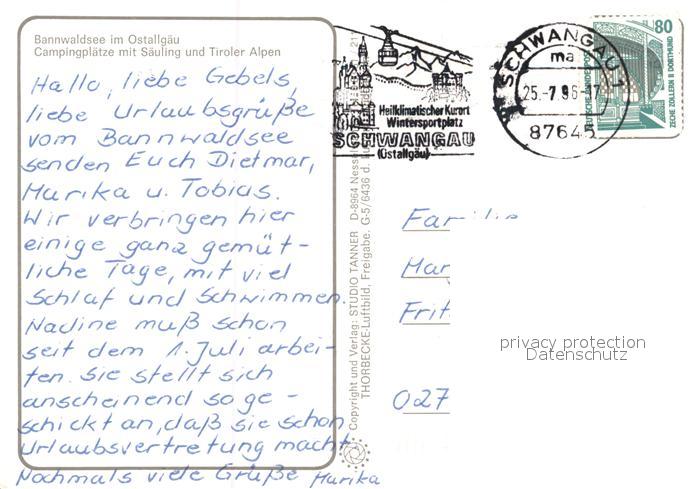 Bannwaldsee im Ostallgäu
Campingplätze mit Säuling und Tiroler Alpen
Hallo, liebe Gebels,
liebe Urlaubsgrüße
vom Bannwaldsee
senden Euch Dietmar,
Marika u. Tobias.
Wir verbringen hier
einige ganz gemüt-
liche Tage, mit viel
Schlaf und Schwimmen.
Nadine muß schon
seit dem 1. Juli arbei-
ten. Sie stellt sich
anscheinend so ge-
schickt an, daß sie schon
Urlaubsvertretung macht.
Nochmals viele Grüße Marika
Copyright und Verlag: STUDIO TANNER D-8964
THORBECKE-Luftbild, Freigabe. G-5/6436 d.
Heilklimatischer Kurort
Wintersportplatz
SCHWANGAU
(Ostallgäu)
SCHWANGAU 1
ma
25.-7.96-17
87645
80
DEUTSCHE BUNDESPOST
ZECHE ZOLLERN II DORTMUND
Familie
Mar
Frit
027
privacy protection
Datenschutz